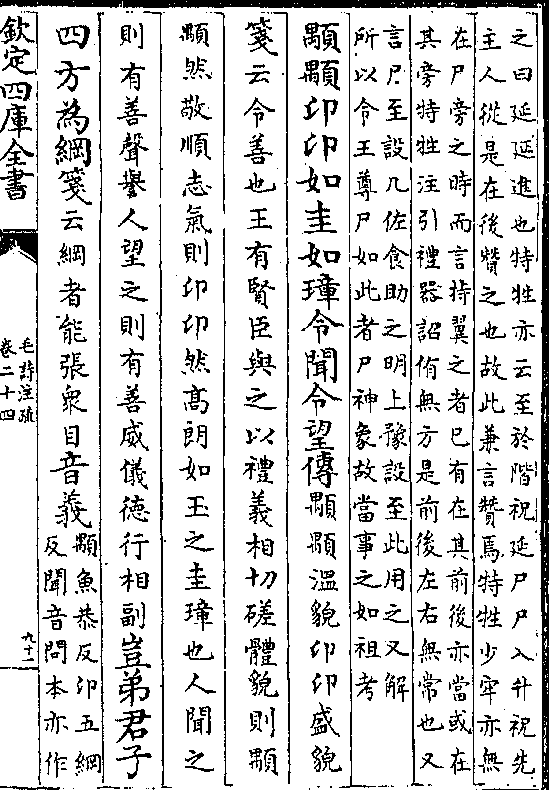 之曰延延進也特牲亦云至於階祝延尸尸入升祝先
主人從是在後贊之也故此兼言贊焉特牲少牢亦無
在尸旁之時而言持翼之者已有在其前後亦當或在
其旁特牲注引禮器詔侑無方是前後左右無常也又
言尸至設几佐食助之明上豫設至此用之又解
所以令王尊尸如此者尸神象故當事之如祖考
顒顒卬卬如圭如璋令聞令望傳顒顒溫貌卬卬盛貌
箋云令善也王有賢臣與之以禮義相切磋體貌則顒
顒然敬順志氣則卬卬然高朗如玉之圭璋也人聞之
則有善聲譽人望之則有善威儀德行相副豈弟君子
四方為綱箋云綱者能張衆目音義
顒魚恭反卬五綱
反聞音問本亦作
欽定四庫全書
毛詩注疏
卷二十四
九十二